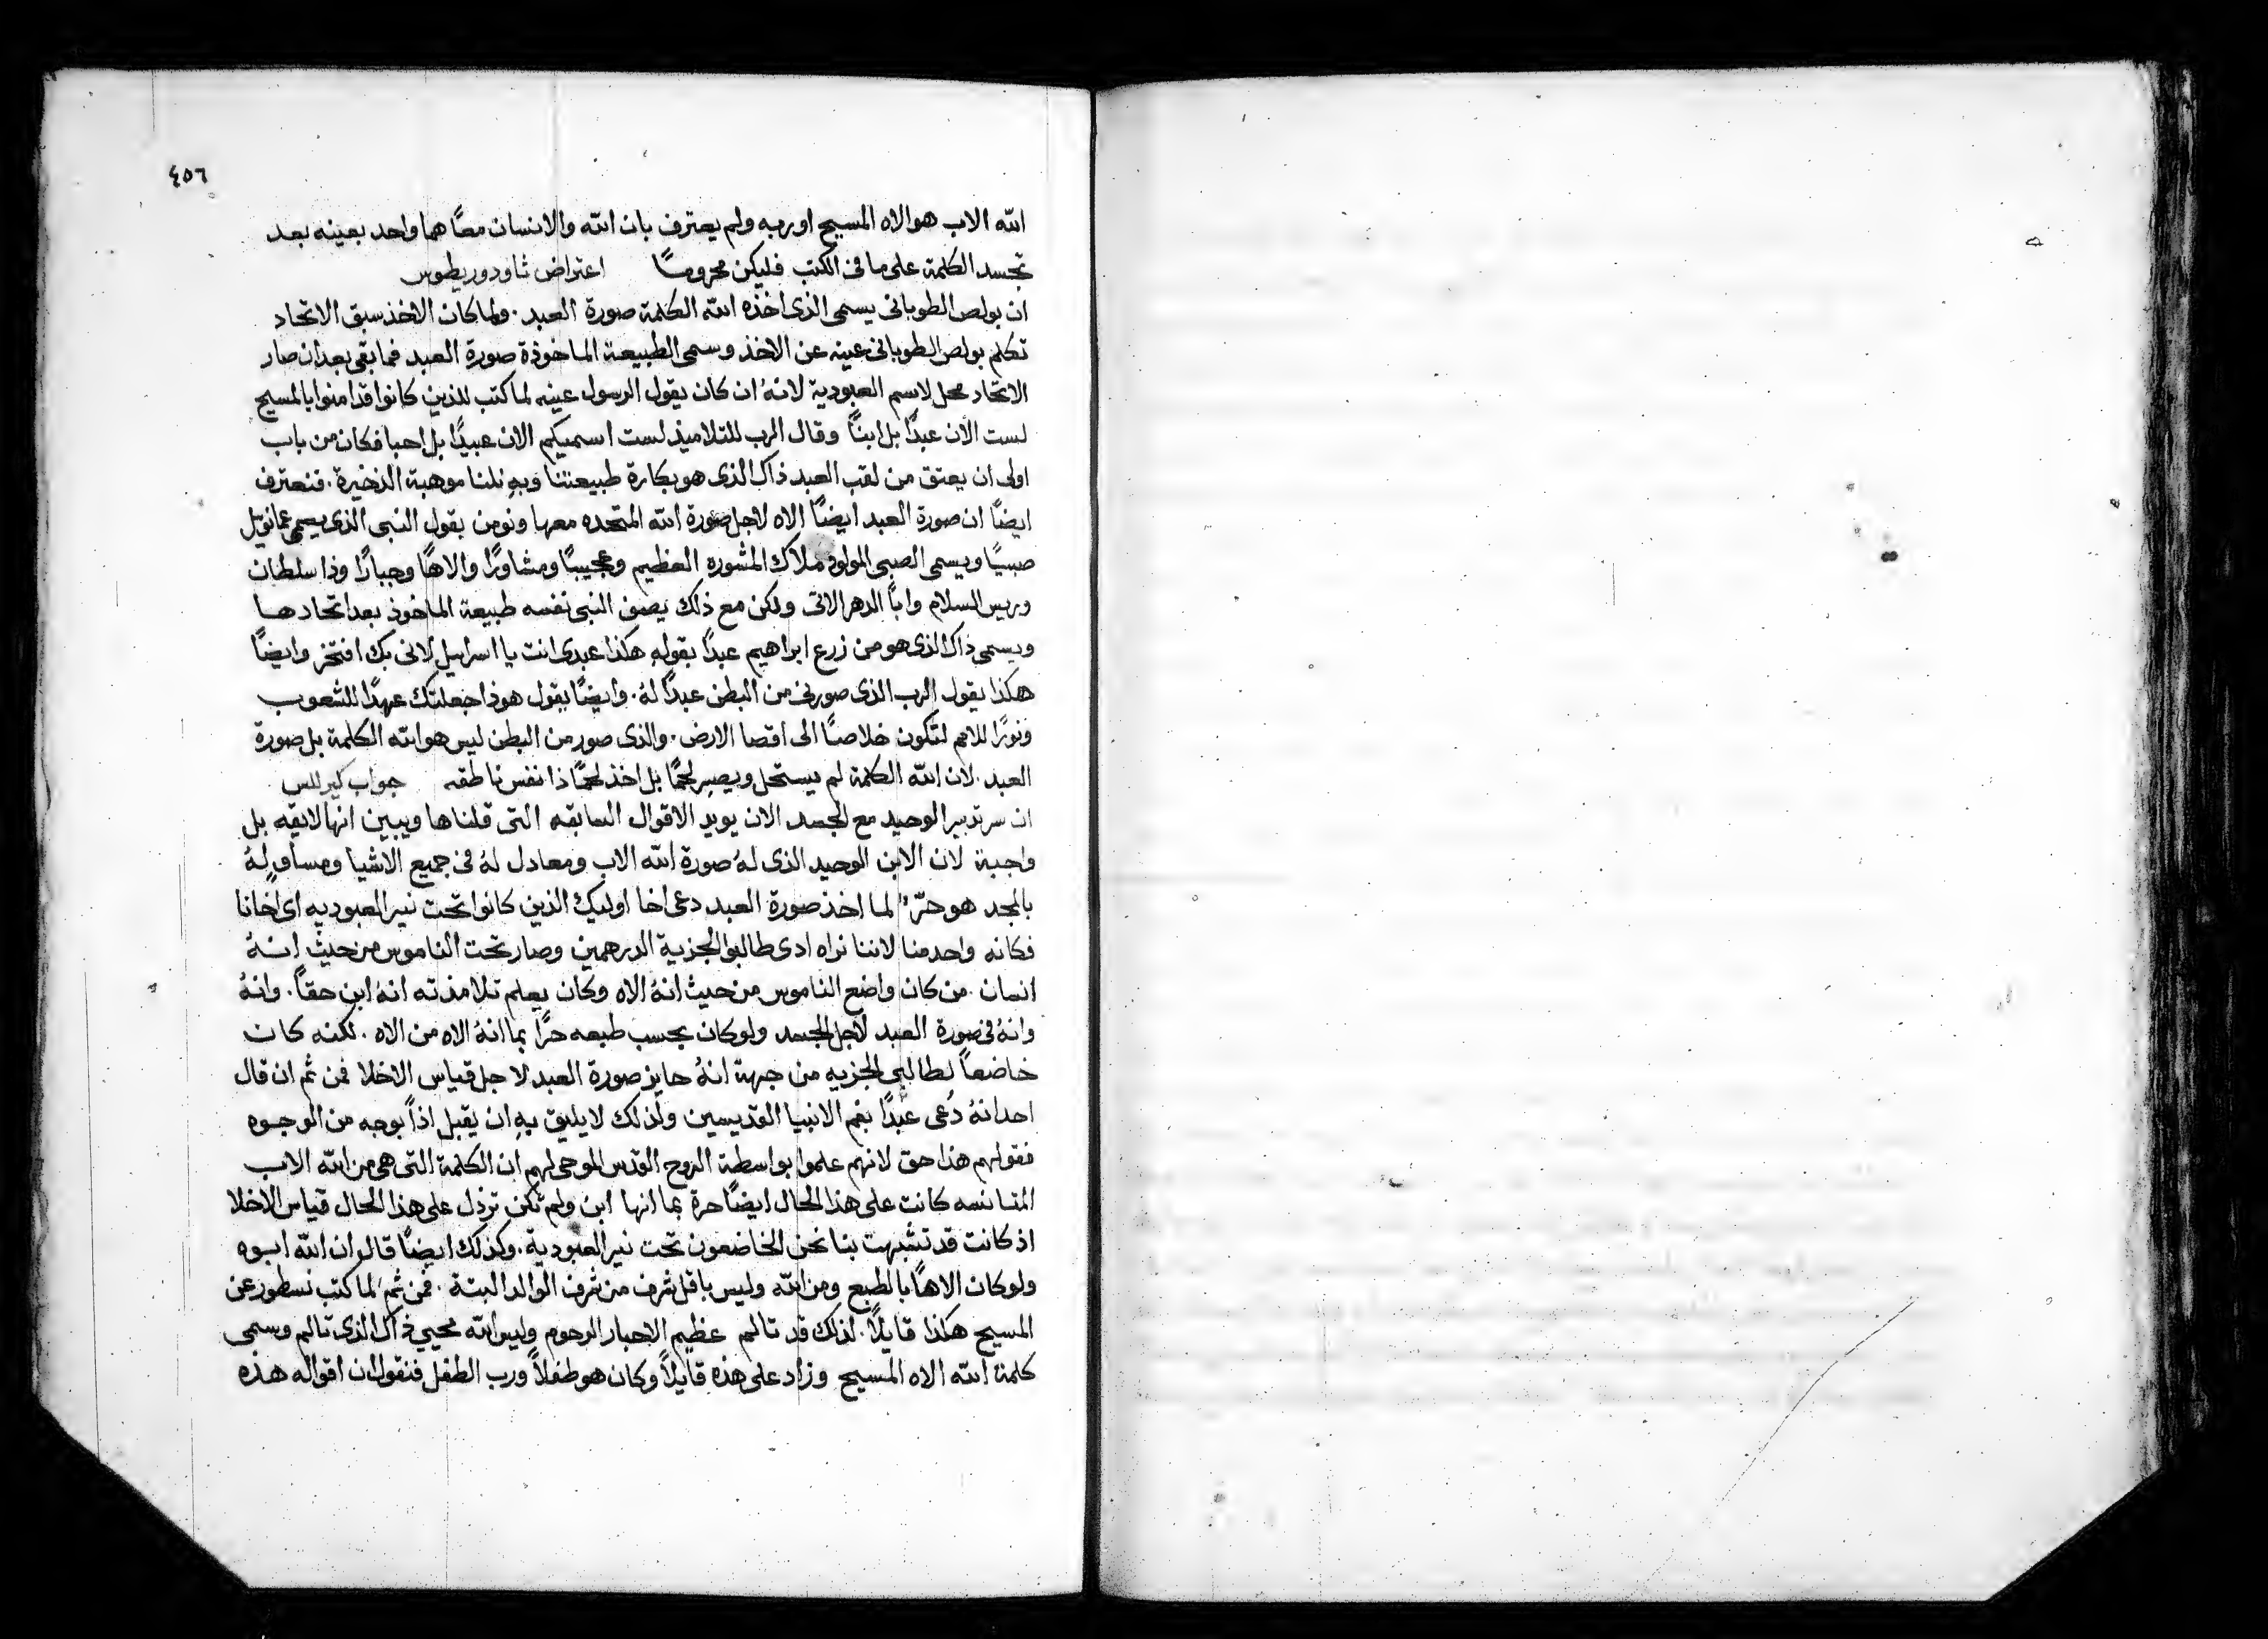 ٤٥٦
الله الاب هو الاه المسيح او ربه ولم يعترف بان الله والانسان معًا هما واحد بعينه بعد
تجسد الكلمة على ما فى الكتب فليكن محرومًا اعتراض ثاودوريطوس
ان بولص الطوبانى يسمى الذى اخذه الله الكلمة صورة العبد. ولما كان الاخذ سبق الاتحاد
تكلم بولص الطوبانى عينه عن الاخذ وسمى الطبيعة الماخوذة صورة العبد فما بقى بعد ان صار
الاتحاد محل لاسم العبودية لانهُ ان كان يقول الرسول عينه لما كتب للذين كانوا قد امنوا بالمسيح
لست الان عبدًا بل ابنًا وقال الرب للتلاميذ لست اسميكم الان عبيدًا بل احبا فكان من باب
اولى ان يعتق من لقب العبد ذاك الذى هو بكارة طبيعتنا وبهِ نلنا موهبة الذخيرة. فنعترف
ايضًا ان صورة العبد ايضًا الاه لاجل صورة الله المتحده معها ونومن بقول النبى الذى يسمى عمانويل
صبيًا ويسمى الصبى المولود ملاك المشورة العظيم وعجيبًا ومشاورًا والاهًا وجبارًا وذا سلطان
وريس السلام وابًا الدهر الاتى ولكن مع ذلك يصف النبى نفسه طبيعة الماخوذ بعد اتحادها
ويسمى ذاك الذى هو من زرع ابراهيم عبدًا بقولهِ هكذا عبدى انت يا اسراييل لانى بك افتخر وايضًا
هكذا يقول الرب الذى صورنى من البطن عبدًا لهُ. وايضًا يقول هوذا جعلتك عهدًا للشعوب
ونورًا للامم لتكون خلاصًا الى اقصا الارض. والذى صور من البطن ليس هو الله الكلمة بل صورة
العبد. لان الله الكلمة لم يستحل ويصير لحمًا بل اخذ لحمًا ذا نفس ناطقه جواب كيرللس
ان سر تدبير الوحيد مع الجسد الان يويد الاقوال السابقه التى قلناها ويبين انها لايقه بل
واجبة لان الابن الوحيد الذى لهُ صورة الله الاب ومعادل لهُ فى جميع الاشيا ومساوٍ لهُ
بالمجد هو حرٌّ لما اخذ صورة العبد دعى اخا اوليك الذين كانوا تحت نير العبوديه اى اخانا
فكانه واحد منا لاننا نراه ادى طالبوا الجزية الدرهمين وصار تحت الناموس من حيث انهُ
انسان. من كان واضع الناموس من حيث انهُ الاه وكان يعلم تلامذته انهُ ابن حقاً. وانهُ
وانهُ فى صورة العبد لاجل الجسد ولو كان بحسب طبعه حرًا بما انهُ الاه من الاه. لكنه كان
خاضعاً لطالبى الجزيه من جهة انهُ حايز صورة العبد لاجل قياس الاخلا فمن ثم ان قال
احد انهُ دُعى عبدًا بفم الانبيا القديسين ولذلك لا يليق بهِ ان يقبل اذاً بوجه من الوجوه
فقولهم هذا حق لانهم علموا بواسطة الروح القدس الموحى لهم ان الكلمة التى هى من الله الاب
المتانسه كانت على هذا الحال ايضًا حرة بما انها ابن ولم تكن ترذل على هذا الحال قياس الاخلا
اذ كانت قد تشبهت بنا نحن الخاضعون تحت نير العبودية. وكذلك ايضًا قال ان الله ابوه
ولو كان الاهًا بالطبع ومن الله وليس باقل شرف من شرف الوالد البتة. فمن ثم لما كتب نسطور عن
المسيح هكذا قايلاً. لذلك قد تالم عظيم الاحبار الرحوم وليس الله محيي ذاك الذى تالم وسمى
كلمة الله الاه المسيح وزاد على هذه قايلاً وكان هو طفلاً ورب الطفل فنقول ان اقواله هذه